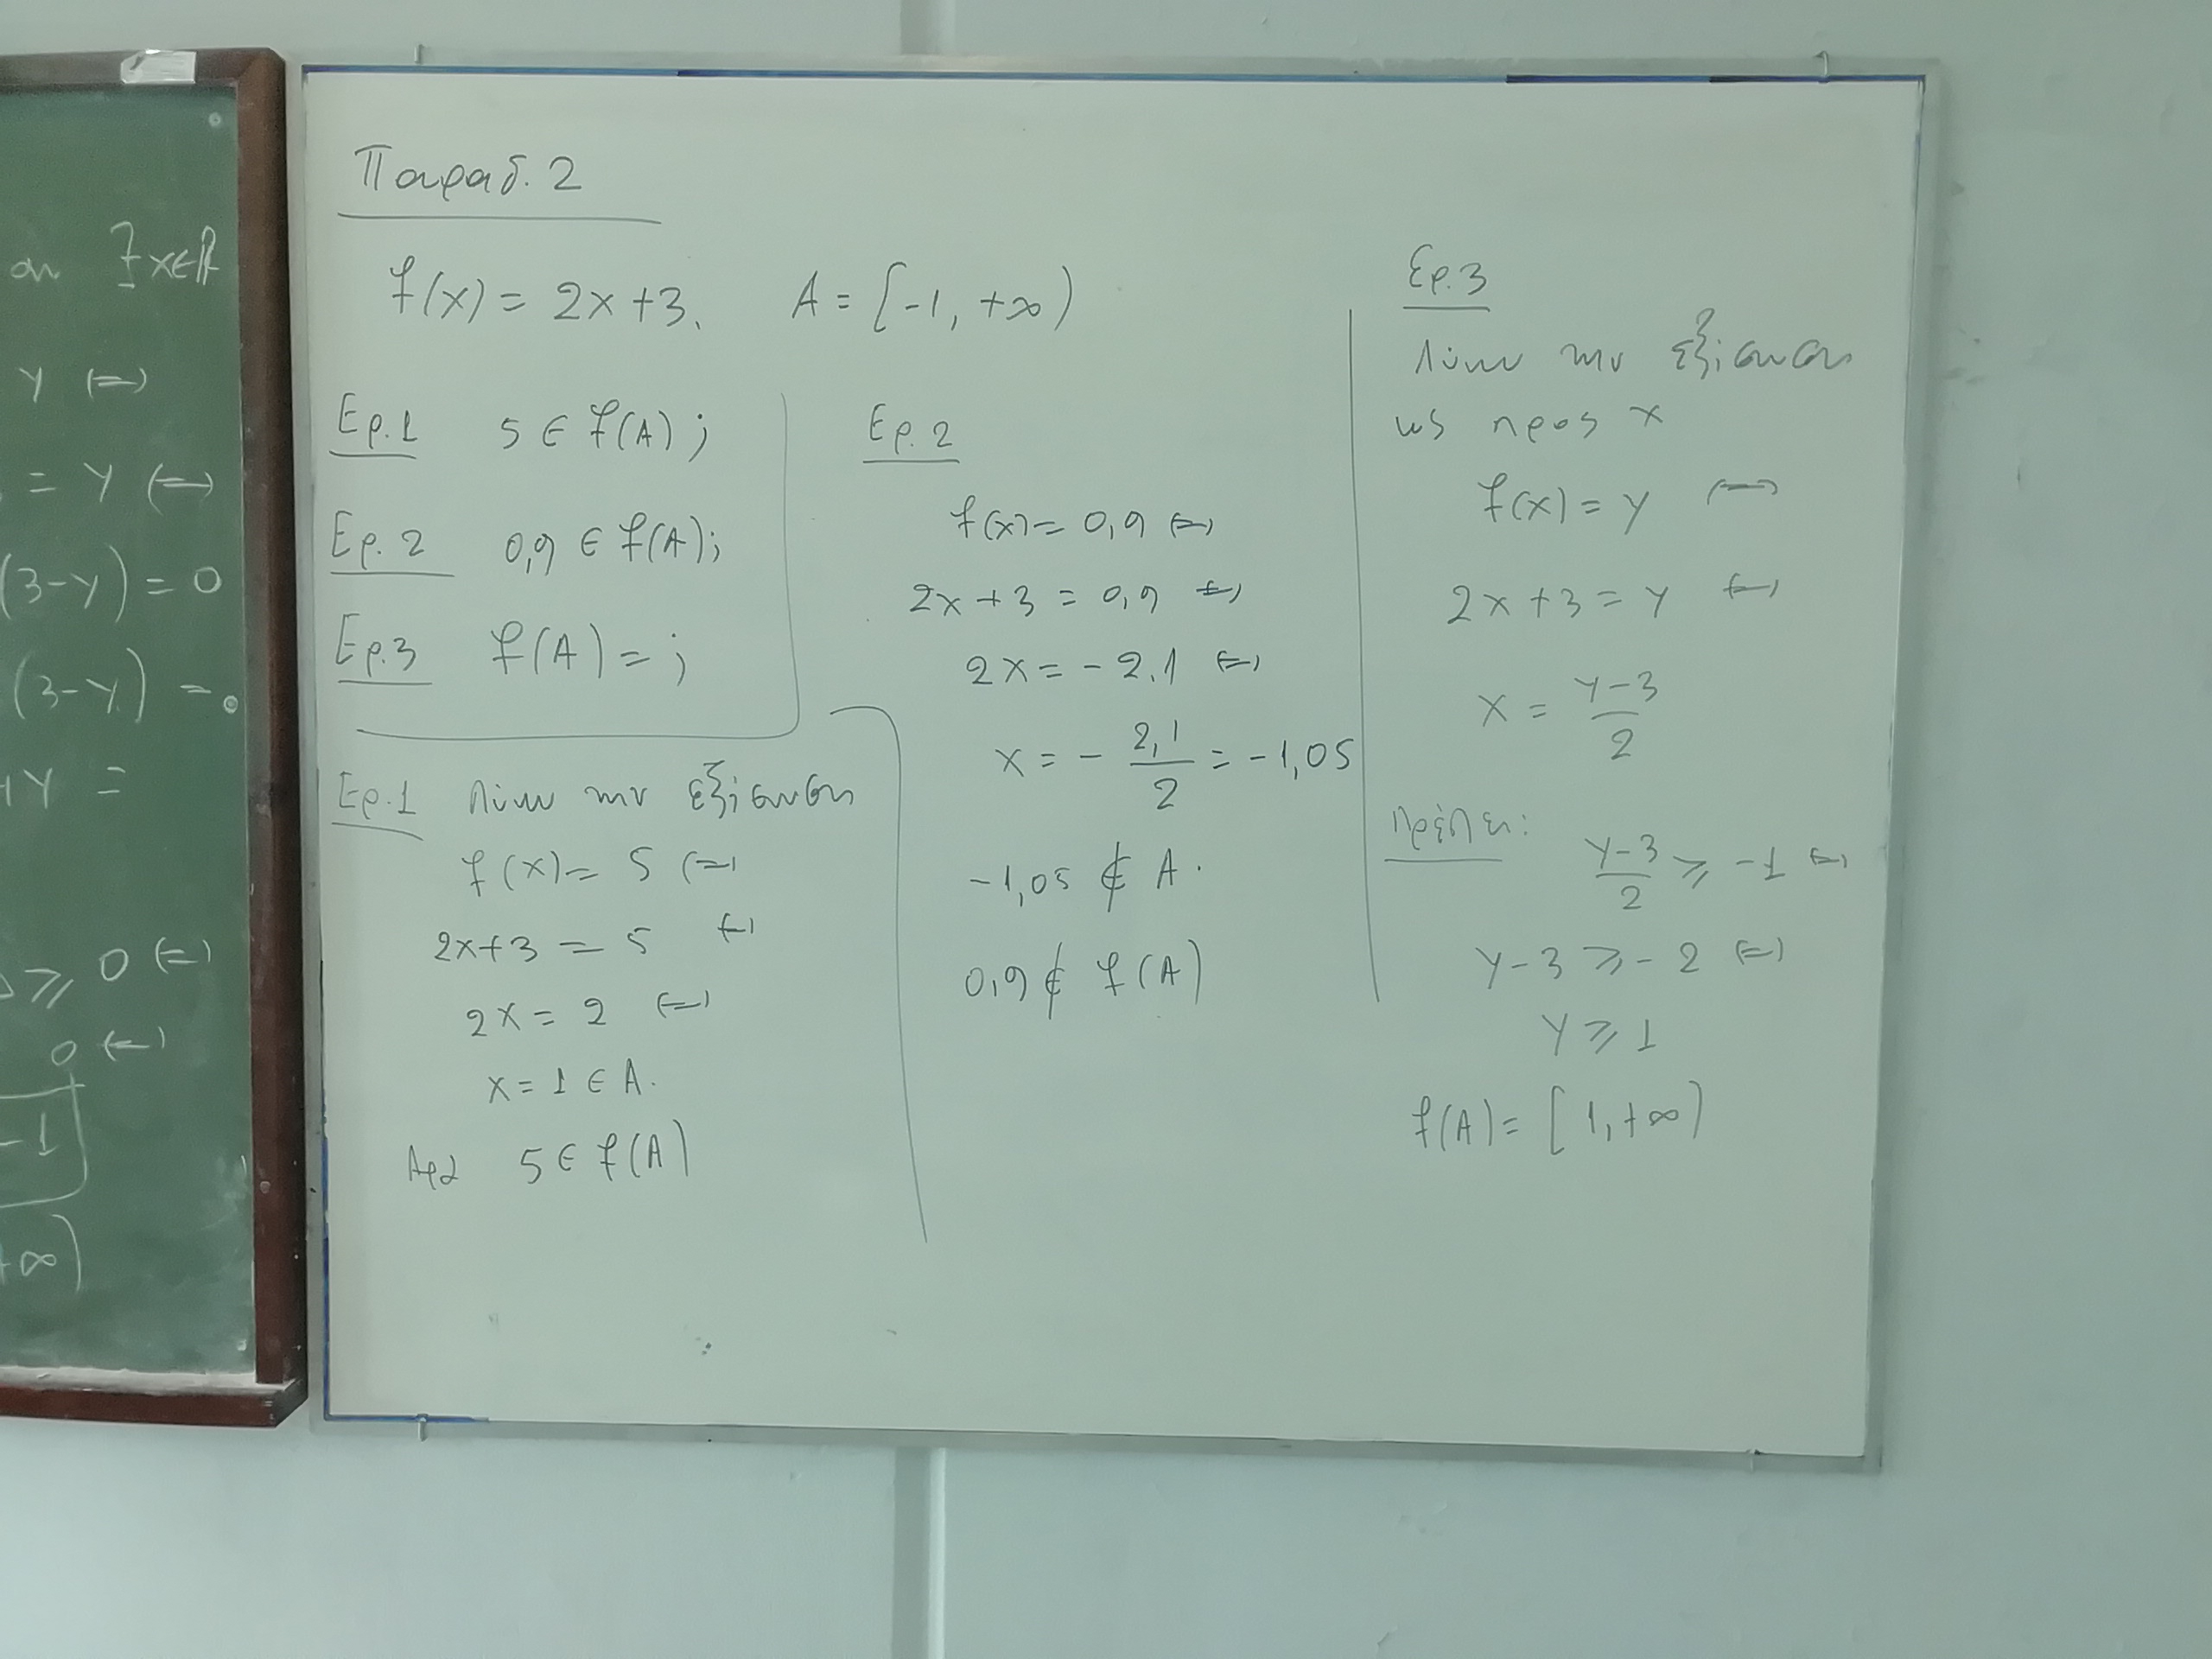 αν ∃x∈A
y ⇔
= y ⇔
(3-y) = 0
(3-y) =
+y =
≥ 0 ⇔
0 ⇔
-1
+∞)
Παραδ. 2
f(x) = 2x+3, A = [-1, +∞)
Ερ.1 5 ∈ f(A);
Ερ. 2 0,9 ∈ f(A);
Ερ.3 f(A) = ;
Ερ.1 Λύνω την εξίσωση
f(x) = 5 ⇔
2x+3 = 5 ⇔
2x = 2 ⇔
x = 1 ∈ A.
Άρα 5 ∈ f(A)
Ερ. 2
f(x) = 0,9 ⇔
2x + 3 = 0,9 ⇔
2x = - 2,1 ⇔
x = - 2,1/2 = -1,05
-1,05 ∉ A.
0,9 ∉ f(A)
Ερ.3
Λύνω την εξίσωση
ως προς x
f(x) = y ⇔
2x + 3 = y ⇔
x = y-3/2
πρέπει: y-3/2 ≥ -1 ⇔
y-3 ≥ -2 ⇔
y ≥ 1
f(A) = [1, +∞)